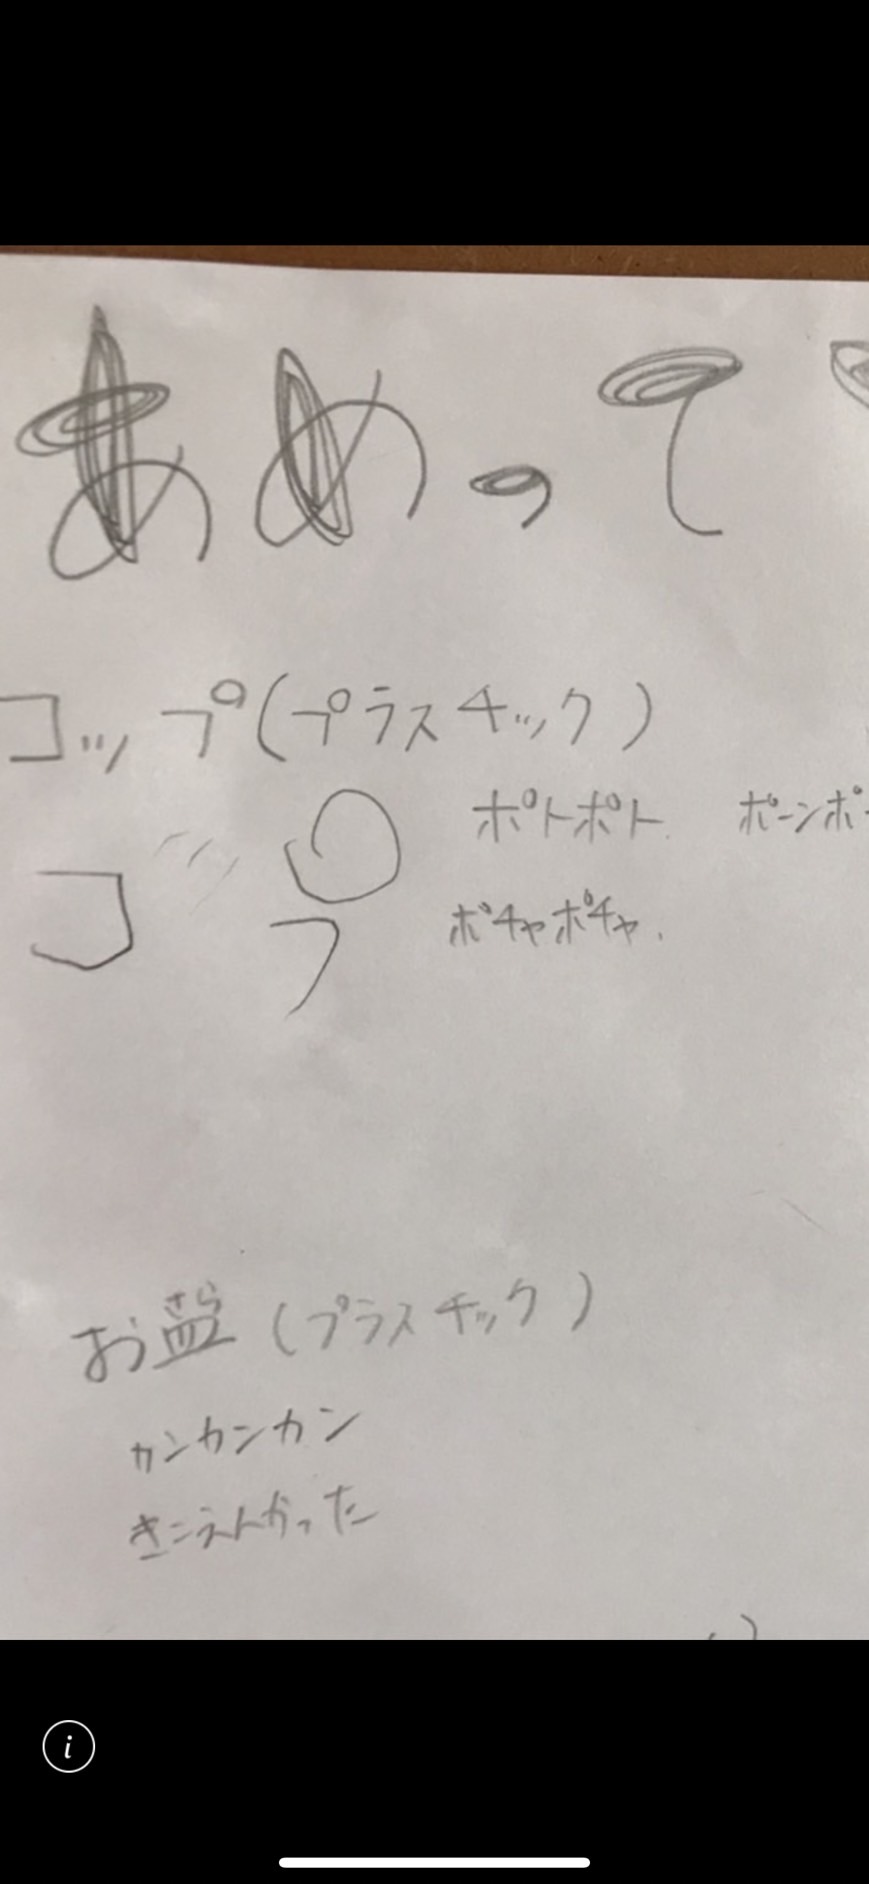 あめって
コップ(プラスチック)
ポトポト ポーンポ
コップ
ポチャポチャ.
お皿(プラスチック)
さら
カンカンカン
きこえんかった